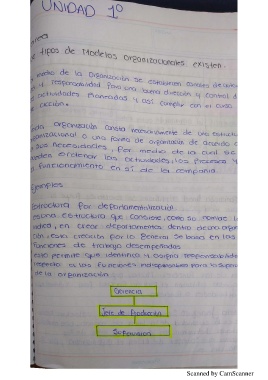 UNIDAD 1º
tipos de Modelos organizacionales existen.
medio de la Organización se establecen canales de
y responsabilidad para una buena dirección y control
actividades planeadas y así cumplir con el curso
acción.
organización consta necesariamente de una
organizacional o una forma de organización de acuerdo
necesidades, Por medio de la cual se
ordenar las actividades, los procesos y
funcionamiento en sí de la compañía.
Ejemplos
Estructura por departamentalización
es una estructura que consiste, como su nombre lo
indica, en crear departamentos dentro de una
esta creación por lo general se basa en las
funciones de trabajo desempeñadas
esto permite que identifica y asigna
respecto a las funciones indispensables para la
de la organización.
Gerencia
Jefe de Producción
Supervision
Scanned by CamScanner